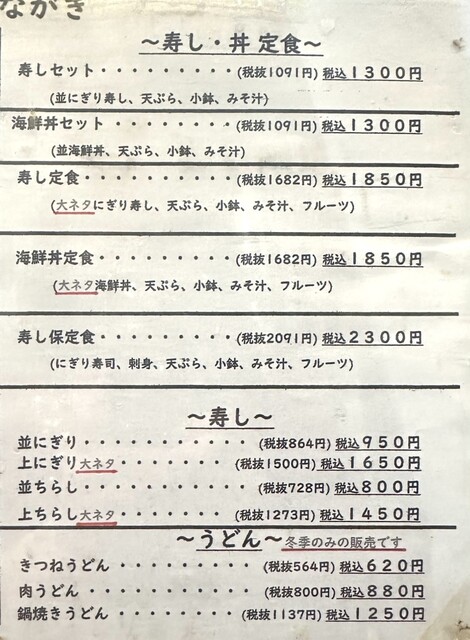 ながき
～寿し・丼 定食～
寿しセット・・・・・・・・・(税抜1091円) 税込1300円
(並にぎり寿し、天ぷら、小鉢、みそ汁)
海鮮丼セット・・・・・・・・・(税抜1091円) 税込1300円
(並海鮮丼、天ぷら、小鉢、みそ汁)
寿し定食・・・・・・・・・(税抜1682円) 税込1850円
(大ネタにぎり寿し、天ぷら、小鉢、みそ汁、フルーツ)
海鮮丼定食・・・・・・・・・(税抜1682円) 税込1850円
(大ネタ海鮮丼、天ぷら、小鉢、みそ汁、フルーツ)
寿し保定食・・・・・・・・・(税抜2091円) 税込2300円
(にぎり寿司、刺身、天ぷら、小鉢、みそ汁、フルーツ)
～寿し～
並にぎり・・・・・・・・・・(税抜864円) 税込950円
上にぎり大ネタ・・・・・・・・(税抜1500円) 税込1650円
並ちらし・・・・・・・・・・(税抜728円) 税込800円
上ちらし大ネタ・・・・・・・・(税抜1273円) 税込1450円
～うどん～冬季のみの販売です
きつねうどん・・・・・・・・・(税抜564円) 税込620円
肉うどん・・・・・・・・・・(税抜800円) 税込880円
鍋焼きうどん・・・・・・・・・(税抜1137円) 税込1250円